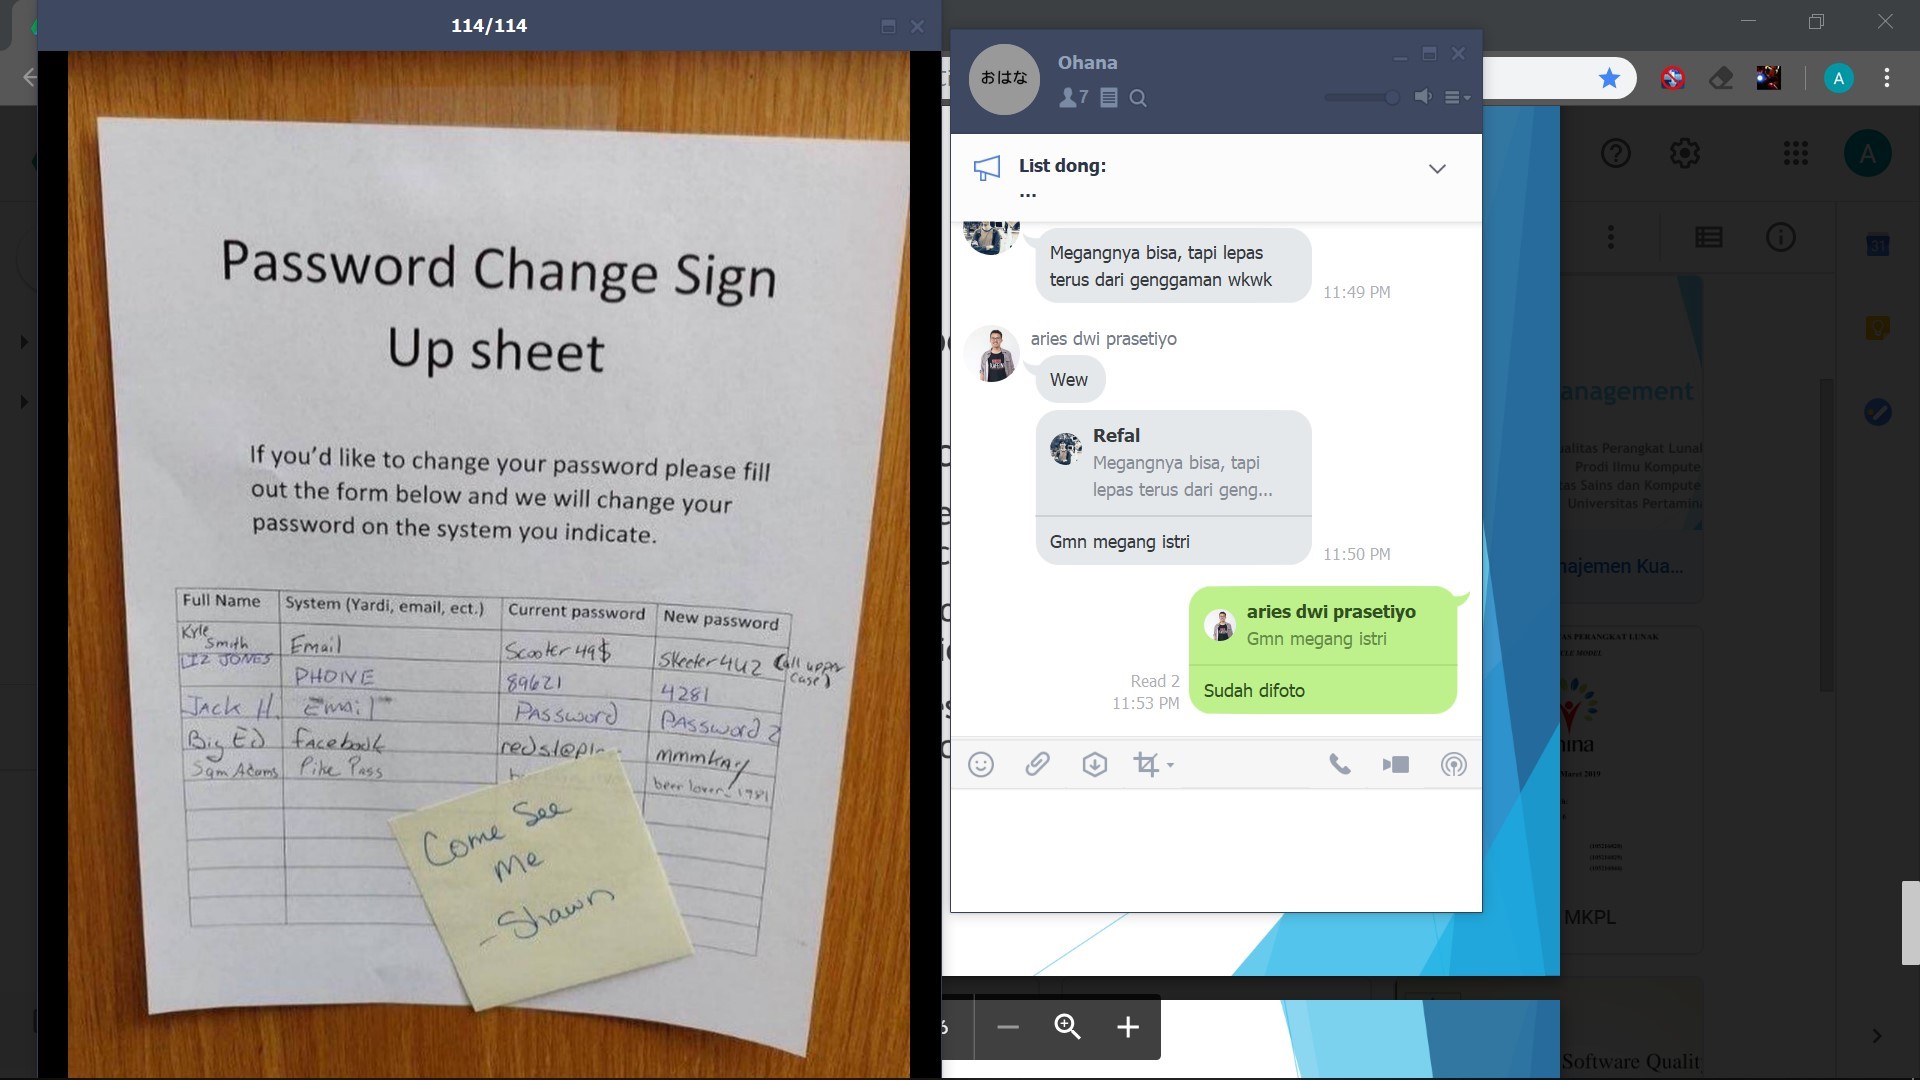 114/114
Password Change Sign
Up sheet
If you'd like to change your password please fill
out the form below and we will change your
password on the system you indicate.
Full Name System (Yardi, email, ect.) Current password New password
Kyle Smith Email Scooter49$ Skeeter4U2 (all upper case)
LIZ JONES PHONE 89621 4281
Jack H. Email Password Password2
Big Ed Facebook mmmkay
Sam Adams Pike Pass beer lover
Come See
Me
-Shawn
おはな
Ohana
7
List dong:
...
Megangnya bisa, tapi lepas
terus dari genggaman wkwk
11:49 PM
aries dwi prasetiyo
Wew
Refal
Megangnya bisa, tapi
lepas terus dari geng...
Gmn megang istri
11:50 PM
aries dwi prasetiyo
Gmn megang istri
Sudah difoto
Read 2
11:53 PM
A
A
31
anagement
alitas Perangkat Lunak
Prodi Ilmu Kompute
tas Sains dan Kompute
Universitas Pertamin
najemen Kua...
AS PERANGKAT LUNAK
CLE MODEL
ina
Maret 2019
MKPL
6
Software Qualit